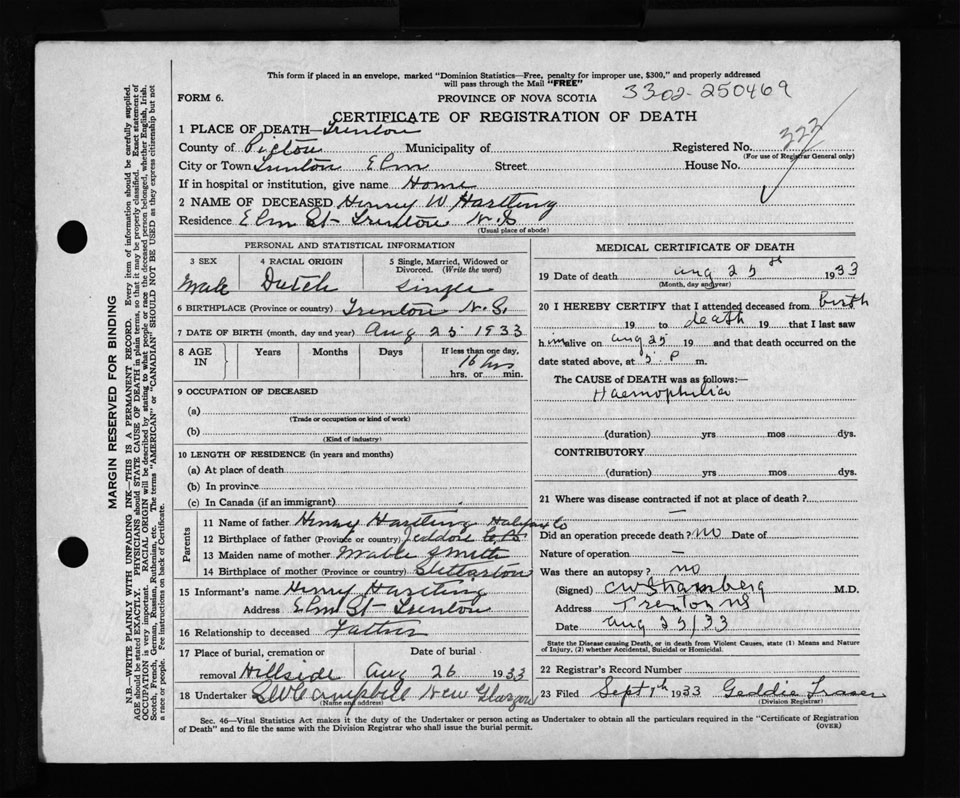 This form if placed in an envelope, marked "Dominion Statistics—Free, penalty for improper use, $300," and properly addressed
will pass through the Mail "FREE"
FORM 6.
PROVINCE OF NOVA SCOTIA
3302-250469
CERTIFICATE OF REGISTRATION OF DEATH
1 PLACE OF DEATH— Trenton
County of Pictou Municipality of Registered No. 323
(For use of Registrar General only)
City or Town Trenton Elm Street House No.
If in hospital or institution, give name Home
2 NAME OF DECEASED Henry W Hartling
Residence Elm St— Trenton N.S
(Usual place of abode)
PERSONAL AND STATISTICAL INFORMATION
3 SEX 4 RACIAL ORIGIN 5 Single, Married, Widowed or Divorced. (Write the word)
Male Dutch single
6 BIRTHPLACE (Province or country) Trenton N.S.
7 DATE OF BIRTH (month, day and year) Aug 25 1933
8 AGE IN Years Months Days If less than one day, 16 hrs
hrs. or min.
9 OCCUPATION OF DECEASED
(a)
(Trade or occupation or kind of work)
(b)
(Kind of industry)
10 LENGTH OF RESIDENCE (in years and months)
(a) At place of death
(b) In province
(c) In Canada (if an immigrant)
Parents
11 Name of father Henry Hartling Halifax Co
12 Birthplace of father (Province or country) Jeddore
13 Maiden name of mother Mable Smith
14 Birthplace of mother (Province or country) Stellarton
15 Informant's name Henry Hartling
Address Elm St— Trenton
16 Relationship to deceased Father
17 Place of burial, cremation or removal Hillside Date of burial Aug 26 1933
18 Undertaker Campbell New Glasgow
(Name and address)
MEDICAL CERTIFICATE OF DEATH
19 Date of death Aug 25 1933
(Month, day and year)
20 I HEREBY CERTIFY that I attended deceased from birth
19 to death 19 that I last saw
him alive on aug 25 19 and that death occurred on the
date stated above, at 5 P m.
The CAUSE of DEATH was as follows:—
Haemophilia
(duration) yrs mos dys.
CONTRIBUTORY
(duration) yrs mos dys.
21 Where was disease contracted if not at place of death?
—
Did an operation precede death? no Date of
Nature of operation —
Was there an autopsy? no
(Signed) M.D.
Address Trenton NS
Date Aug 25/33
State the Disease causing Death, or in death from Violent Causes, state (1) Means and Nature
of Injury, (2) whether Accidental, Suicidal or Homicidal.
22 Registrar's Record Number
23 Filed Sept 1st 1933 Geddie Fraser
(Division Registrar)
Sec. 46—Vital Statistics Act makes it the duty of the Undertaker or person acting as Undertaker to obtain all the particulars required in the "Certificate of Registration
of Death" and to file the same with the Division Registrar who shall issue the burial permit.
(OVER)
MARGIN RESERVED FOR BINDING
N.B.—WRITE PLAINLY WITH UNFADING INK—THIS IS A PERMANENT RECORD. Every item of information should be carefully supplied.
AGE should be stated EXACTLY. PHYSICIANS should STATE CAUSE OF DEATH in plain terms, so that it may be properly classified. Exact statement of
OCCUPATION is very important. RACIAL ORIGIN will be described by stating to what people or race the deceased person belonged, whether English, Irish,
Scotch, French, German, Russian, Ruthenian, etc. The terms "AMERICAN" or "CANADIAN" SHOULD NOT BE USED as they express citizenship but not
a race or people. Fee instructions on back of Certificate.